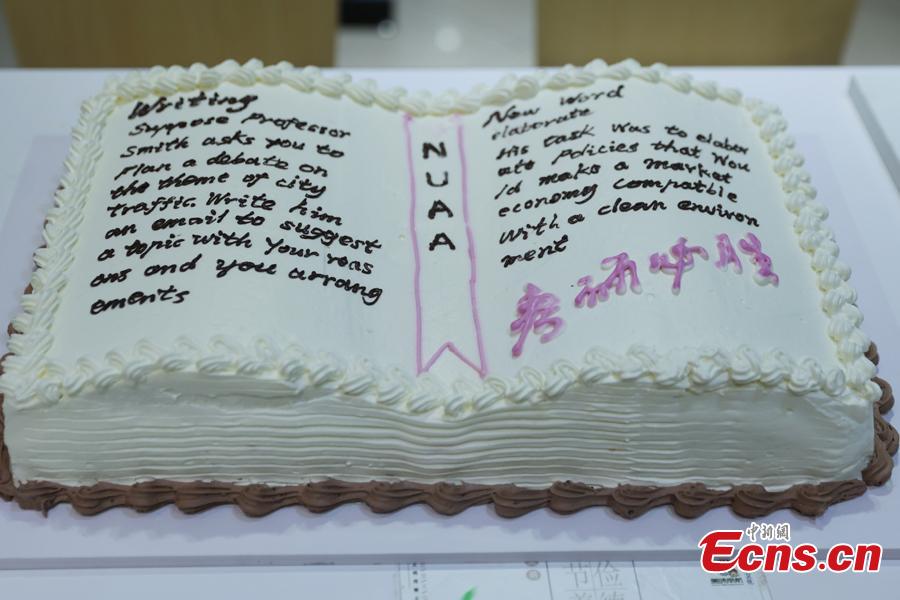 Writing
Suppose Professor
Smith asks you to
Plan a debate on
the theme of city
traffic. Write him
an email to suggest
a topic with Your reas
ons and you arrang
ements
NUAA
New Word
elaborate
His task was to elabor
ate Policies that wou
ld make a market
economy compatble
with a clean environ
ment
考研必胜
中新網
Ecns.cn
节俭